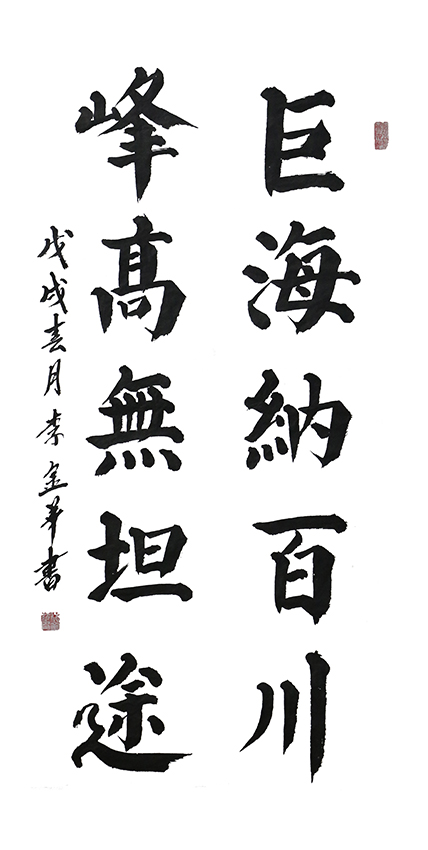 巨海納百川
峰髙無坦途
戊戌春月李金華書